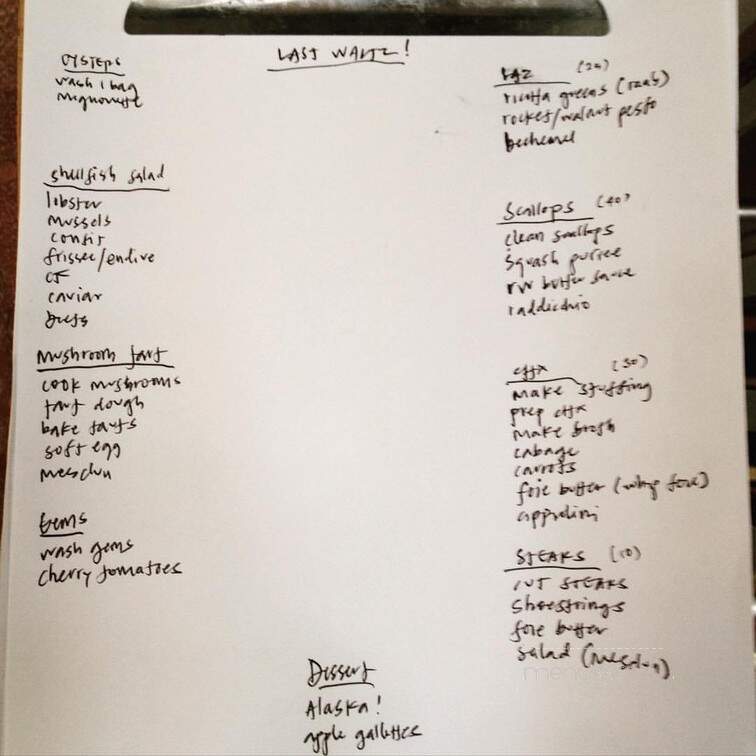 LAST WALTZ!
OYSTERS
wash 1 bag
mignonette
shellfish salad
lobster
mussels
confit
frissee/endive
CF
caviar
Mushroom tart
cook mushrooms
tart dough
bake tarts
soft egg
mesclun
Gems
wash gems
cherry tomatoes
LAZ (20)
ricotta greens (raab)
rocket/walnut pesto
bechemel
Scallops (40)
clean scallops
squash puree
rw butter sauce
raddichio
(30)
make stuffing
prep
make broth
cabage
carrots
foie butter (whip foie)
STEAKS (10)
CUT STEAKS
shoestrings
foie butter
salad (mesclun)
Dessert
Alaska!
apple gallettes